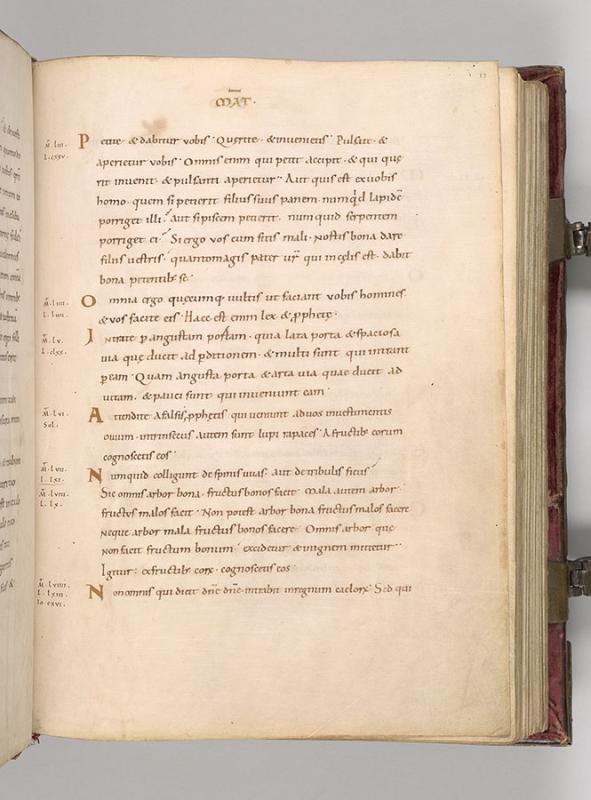 MAT·
M. liii. Petite· & dabitur vobis· Quęrite· & invenietis· Pulsate· &
L. cxxv. aperietur vobis· Omnis enim qui petit accipit· & qui quę
rit invenit· & pulsanti aperietur· Aut quis est ex vobis
homo· quem si petierit filius suus panem· numqd lapidē
porriget illi· aut si piscem petierit· numquid serpentem
porriget ei· Si ergo vos cum sitis mali· Nostis bona dare
filiis vestris· quantomagis pater vr̄ qui in cęlis est· dabit
bona petentib; se·
M. liiii. Omnia ergo quęcumq; vultis ut faciant vobis homines·
L. liiii. & vos facite eis· Haec est enim lex & pphetę·
M. lv. Intrate p angustam portam· quia lata porta & spatiosa
L. clxx. via quę ducit ad pditionem· & multi sunt qui intrant
p eam· Quam angusta porta & arta via quae ducit ad
vitam· & pauci sunt qui inveniunt eam·
M. lvi. Attendite a falsis pphetis qui veniunt ad vos in vestimentis
Sol. ovium· intrinsecus autem sunt lupi rapaces· A fructib; eorum
cognoscetis eos·
M. lvii. Numquid colligunt de spinis uvas· aut de tribulis ficus·
L. lxi.
M. lviii. Sic omnis arbor bona· fructus bonos facit· Mala autem arbor·
L. lx. fructus malos facit· Non potest arbor bona fructus malos facere·
Neque arbor mala fructus bonos facere· Omnis arbor quę
non facit fructum bonum· excidetur & in ignem mittetur·
Igitur· ex fructib; eorx· cognoscetis eos·
M. lviiii. Non omnis qui dicit dn̄e dn̄e· intrabit in regnum caelorx· Sed qui
L. lxiii.
Io. cxvi.